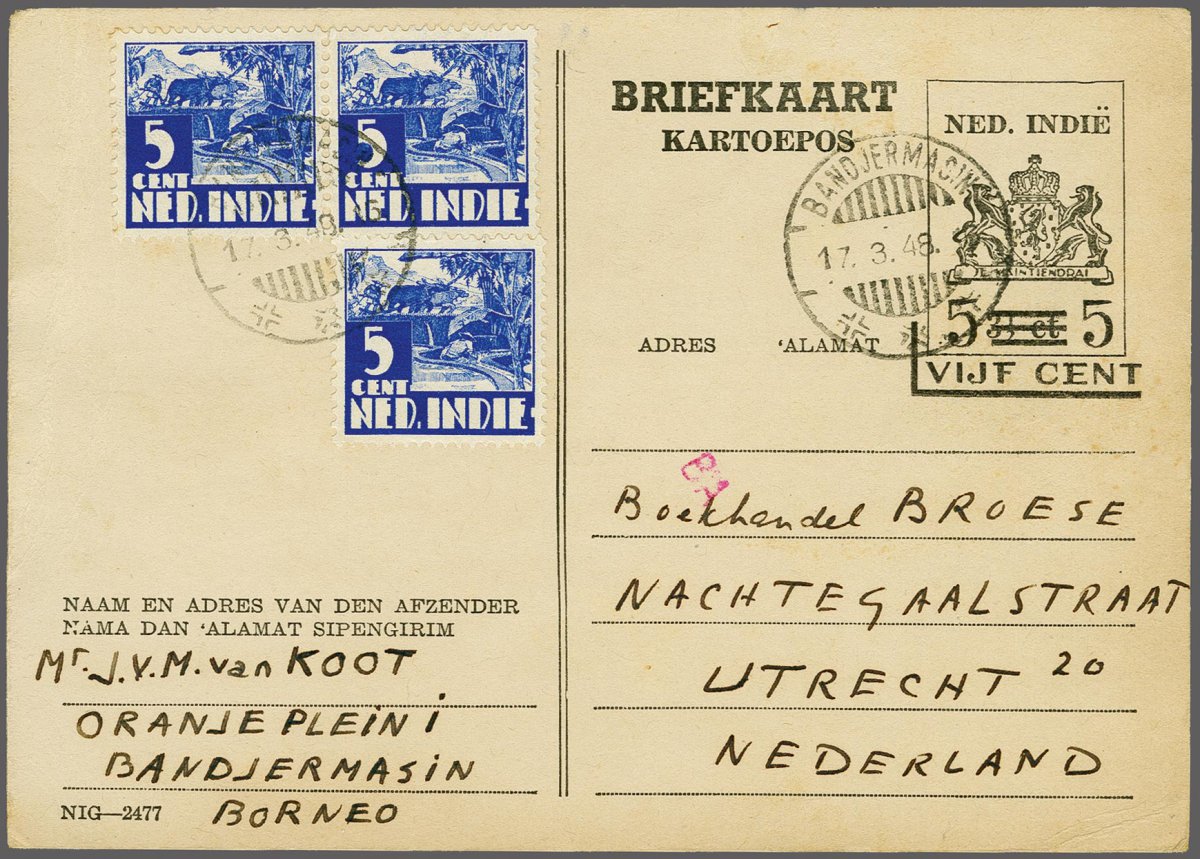 5
CENT
NED. INDIE
5
CENT
NED. INDIE
17.3.48.
5
CENT
NED. INDIE
BRIEFKAART
KARTOEPOS
NED. INDIË
BANDJERMASIN
17.3.48.
JE MAINTIENDRAI
5 3½ ct 5
VIJF CENT
ADRES 'ALAMAT
Boekhandel BROESE
NACHTEGAALSTRAAT
UTRECHT 20
NEDERLAND
NAAM EN ADRES VAN DEN AFZENDER
NAMA DAN 'ALAMAT SIPENGIRIM
Mr. J.V.M. van KOOT
ORANJEPLEIN 1
BANDJERMASIN
BORNEO
NIG—2477